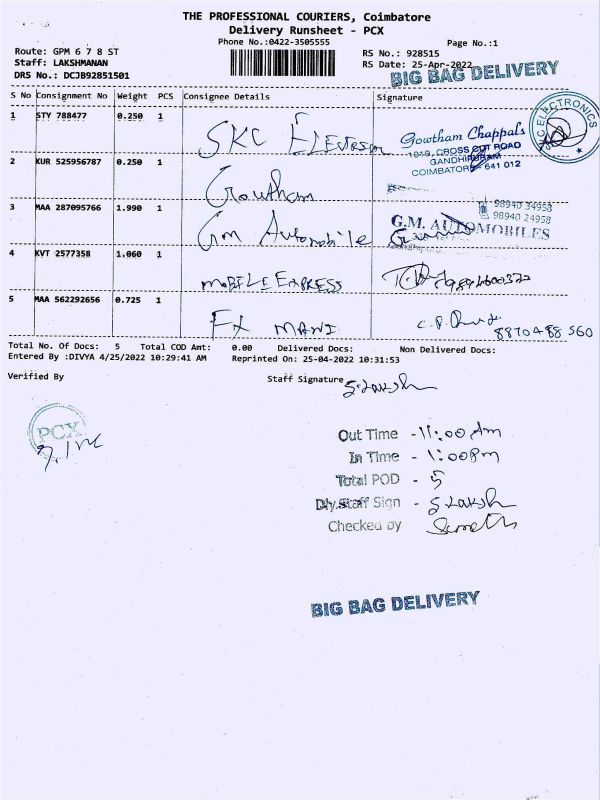 THE PROFESSIONAL COURIERS, Coimbatore
Delivery Runsheet - PCX
Phone No.:0422-3505555
Page No.:1
Route: GPM 6 7 8 ST
RS No.: 928515
Staff: LAKSHMANAN
RS Date: 25-Apr-2022
DRS No.: DCJB92851501
BIG BAG DELIVERY
S No Consignment No Weight PCS Consignee Details Signature
1 STY 788477 0.250 1 SKC
Gowtham Chappals
1019, CROSS CUT ROAD
GANDHIPURAM
COIMBATORE - 641 012
ELECTRONICS
2 KUR 525956787 0.250 1 Gowtham
3 MAA 287095766 1.990 1 Gm Automobile
98940 34958
98940 24958
G.M. AUTOMOBILES
4 KVT 2577358 1.060 1 MOBILE EXPRESS
5 MAA 562292656 0.725 1 MANI
8870488560
Total No. Of Docs: 5 Total COD Amt: 0.00 Delivered Docs: Non Delivered Docs:
Entered By :DIVYA 4/25/2022 10:29:41 AM Reprinted On: 25-04-2022 10:31:53
Verified By
Staff Signature S. Laksh
PCX
Out Time - 11:00 Am
In Time - 1:00 Pm
Total POD - 5
Dly.Staff Sign - S Laksh
Checked by
BIG BAG DELIVERY